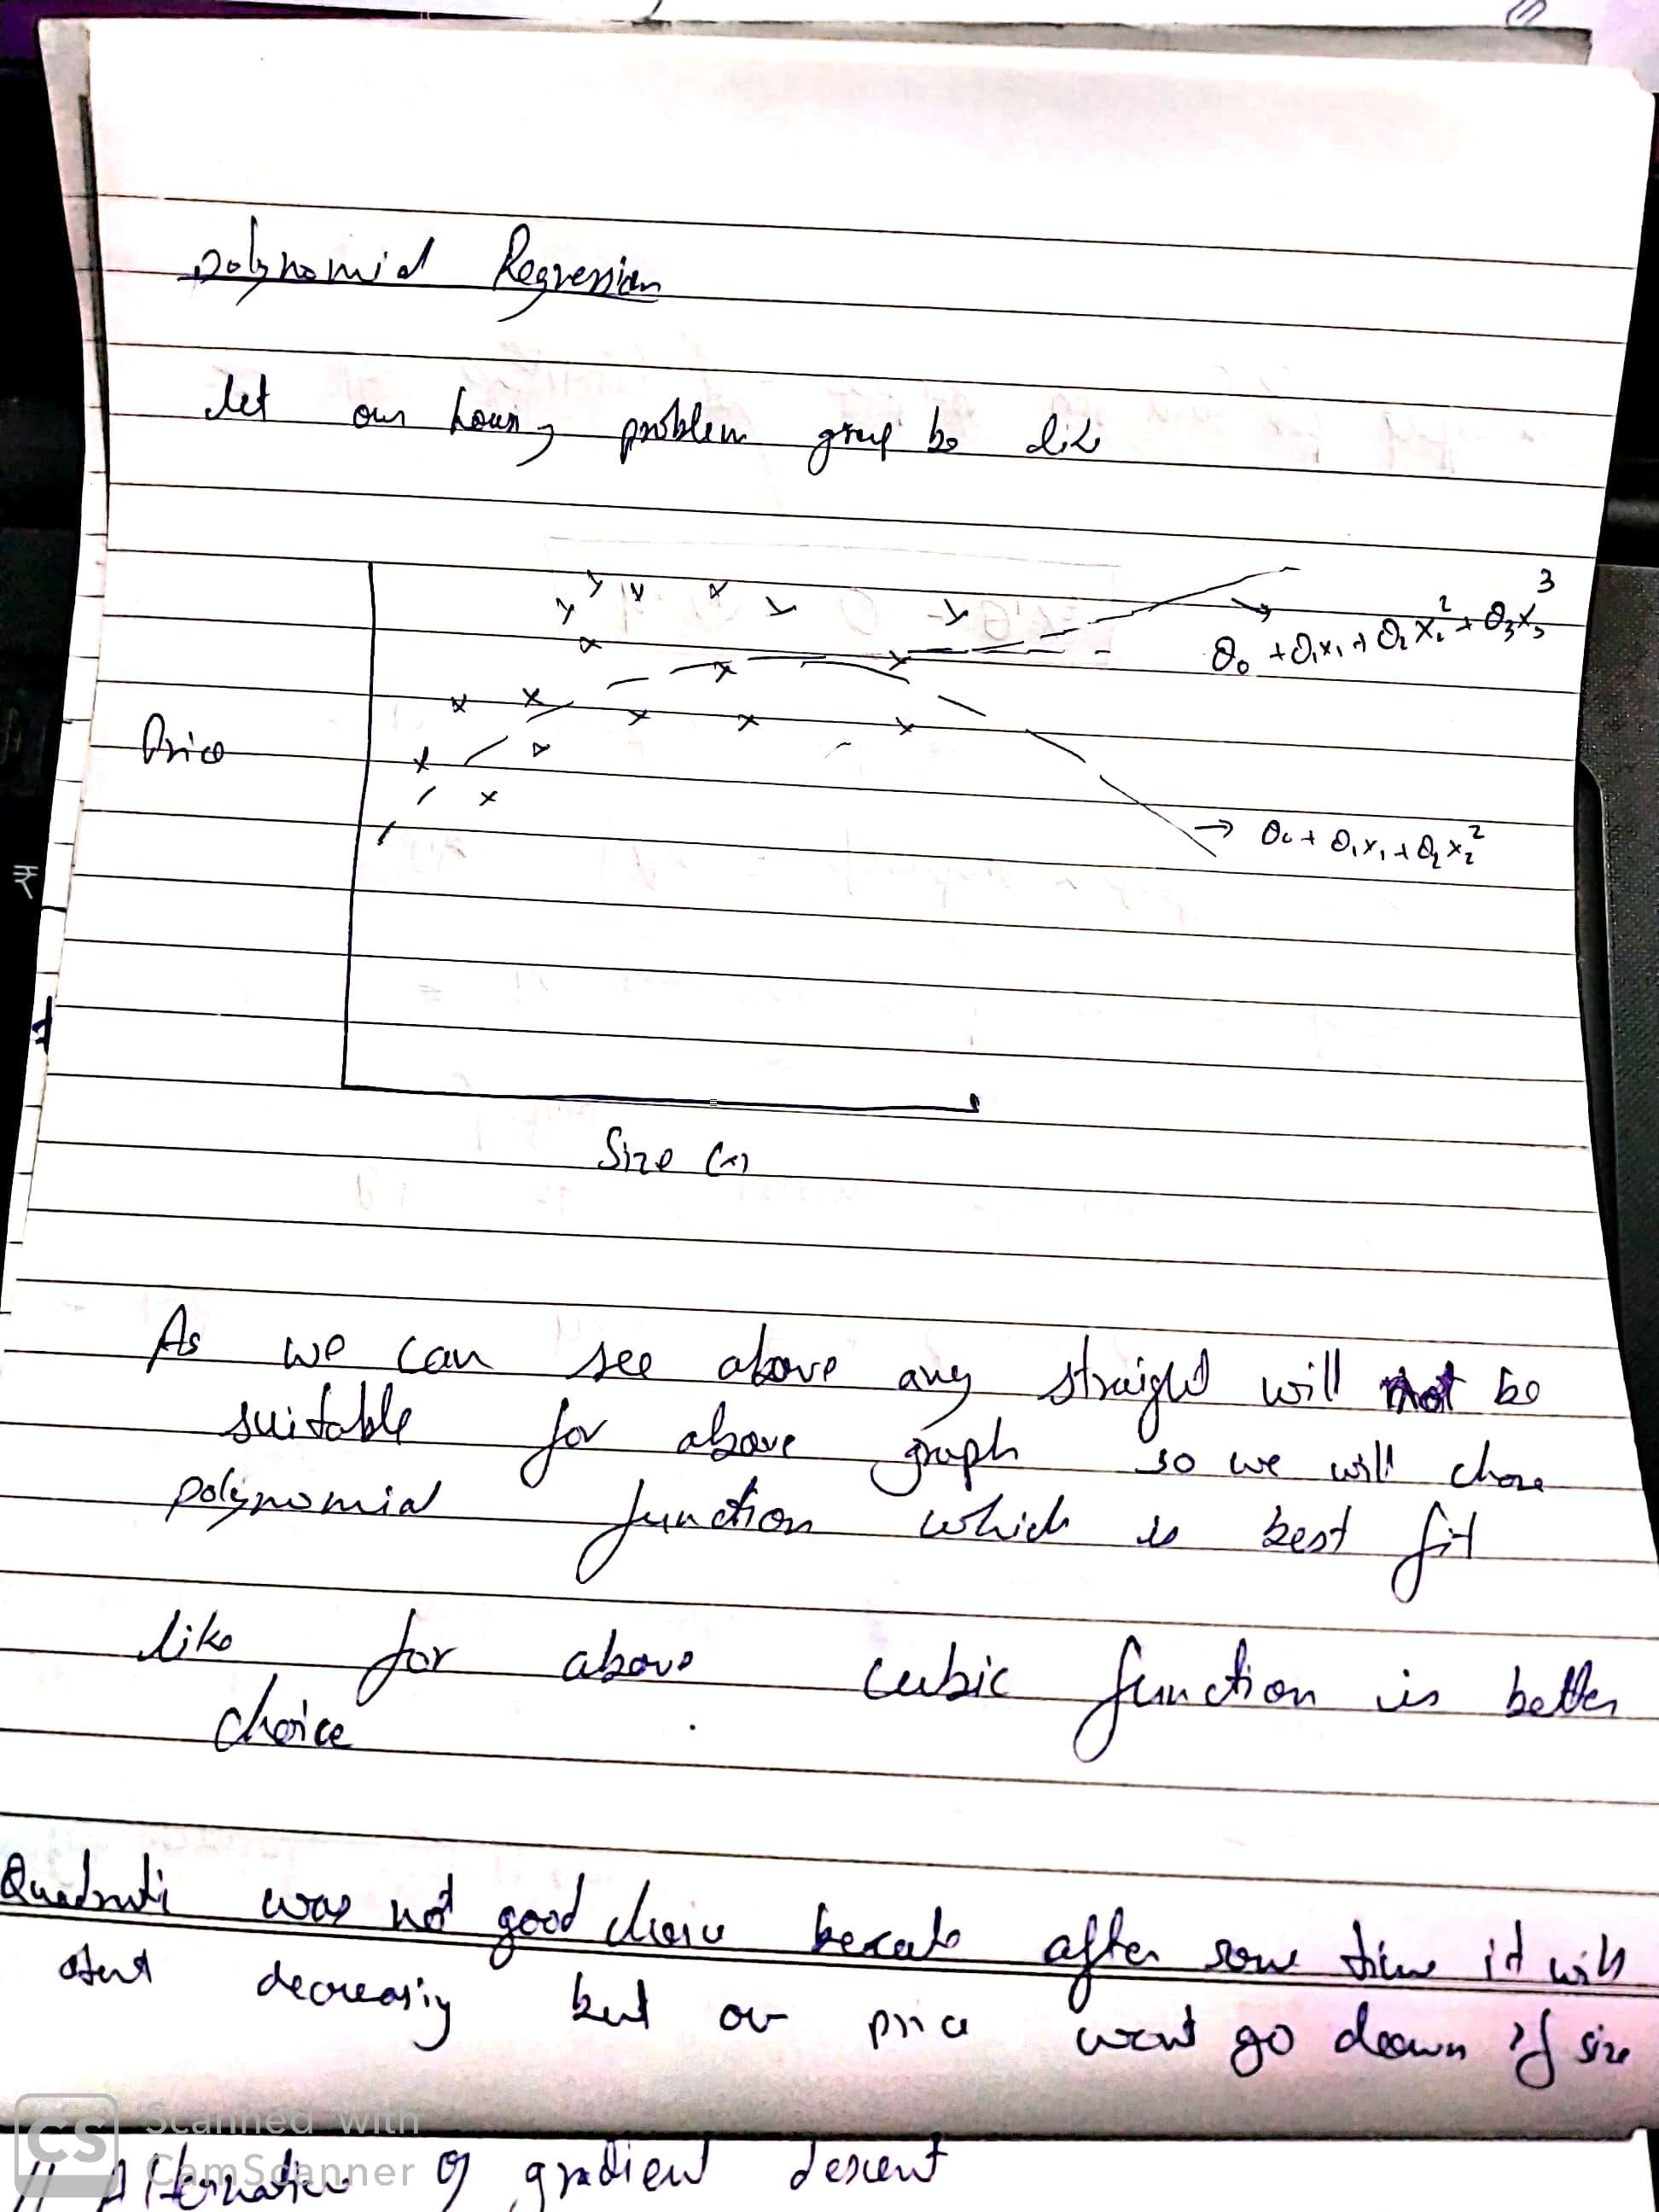 polynomial Regression
let our housing problem grap be like
θ₀ + θ₁x₁ + θ₂x₂² + θ₃x₃³
Price
θ₀ + θ₁x₁ + θ₂x₂²
Size (x)
As we can see above any straight will not be
suitable for above graph so we will chose
polynomial function which is best fit
like for above cubic function is better
choice
Quadrati was not good choice because after some time it will
start decreasing but our price wont go down if size
CS Scanned with
CamScanner
of gradient descent